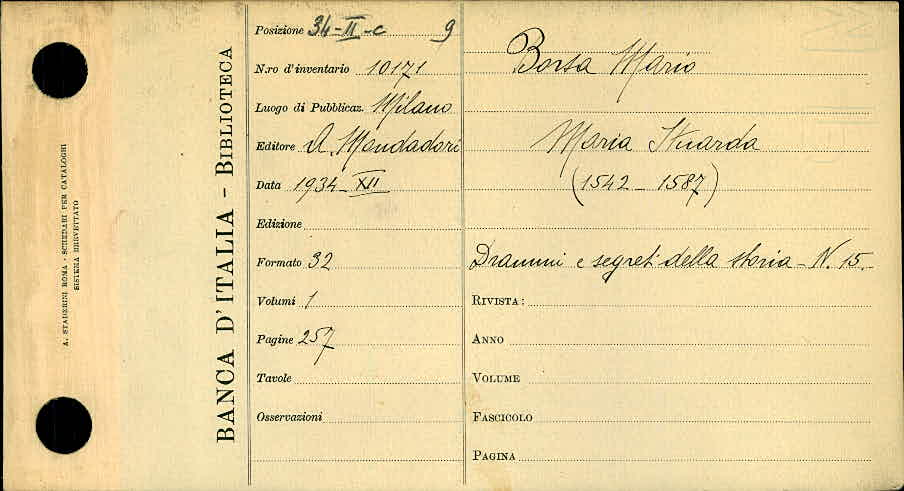 A. STADERINI ROMA - SCHEDARI PER CATALOGHI
SISTEMA BREVETTATO
BANCA D'ITALIA - BIBLIOTECA
Posizione 34-II-c 9
N.ro d'inventario 10171
Luogo di Pubblicaz. Milano
Editore A. Mondadori
Data 1934-XII
Edizione
Formato 32
Volumi 1
Pagine 257
Tavole
Osservazioni
Borsa Mario
Maria Stuarda
(1542 - 1587)
Drammi e segreti della storia - N. 15.
RIVISTA:
ANNO
VOLUME
FASCICOLO
PAGINA